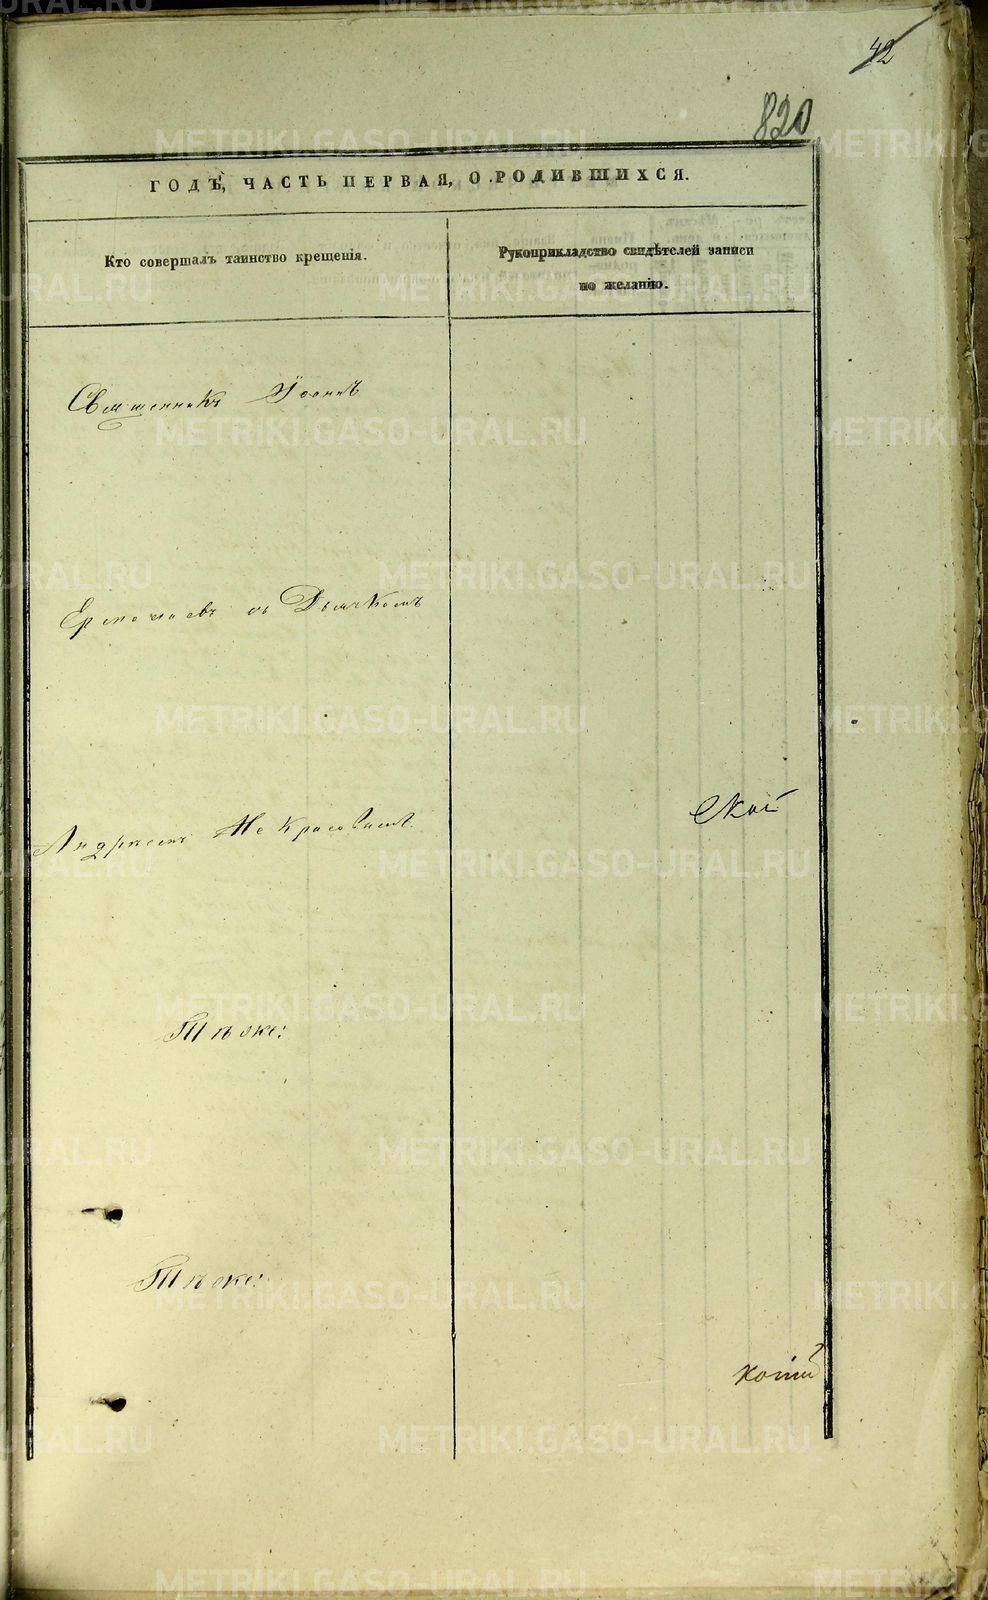 42
820
ГОДѢ, ЧАСТЬ ПЕРВАЯ, О РОДИВШИХСЯ.
Кто совершалъ таинство крещенія.
Рукоприкладство свидѣтелей записи
по желанію.
Священникъ Іоаннъ
Ермолаевъ съ Дьячкомъ
Андреемъ Некрасовымъ.
Тѣ же:
Тѣ же:
METRIKI.GASO-URAL.RU